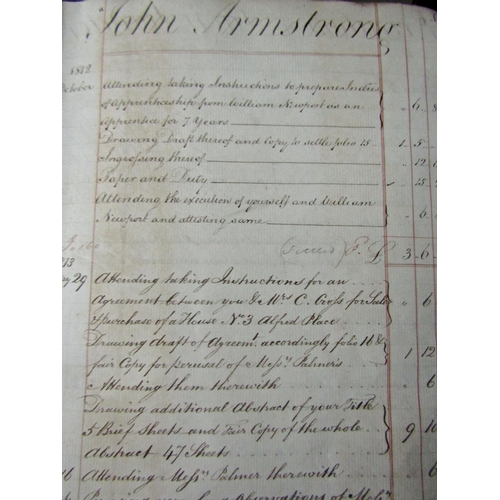 John Armstrong
1812
October Attending taking Instructions to prepare Indres
of Apprenticeship from William Newport as an
apprentice for 7 Years " 6
Drawing Draft thereof and Copy to settle folio 15 1 5
Ingrossing thereof 12
Paper and Duty 15
Attending the execution of yourself and William
Newport and attesting same 6
£ 3 6
13
29 Attending taking Instructions for an
Agreement between you & Mrs C. Cross for Sale
& purchase of a House N. 3 Alfred Place " 6
Drawing draft of Agreemt. accordingly folio 16 &
fair Copy for perusal of Messrs Palmer's 1 12
Attending them therewith 6
Drawing additional Abstract of your Title
5 Brief Sheets and Fair Copy of the whole 9 10
Abstract 47 Sheets
Attending Messrs Palmer therewith 6
Observations of Messrs